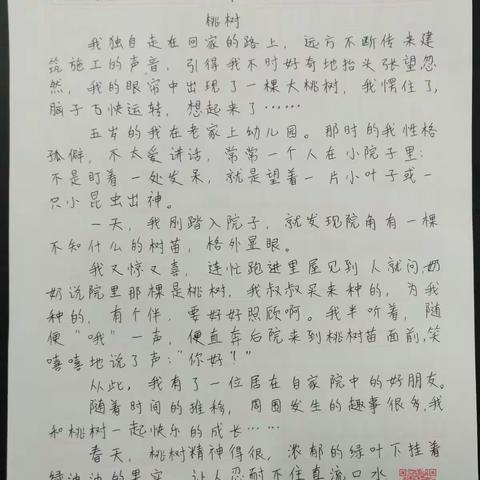 桃树
我独自走在回家的路上，远方不断传来建
筑施工的声音，引得我不时好有地抬头张望忽
然，我的眼帘中出现了一棵大桃树，我愣住了，
脑子飞快运转，想起来了……
五岁的我在老家上幼儿园。那时的我性格
孤僻，不太爱讲话，常常一个人在小院子里：
不是盯着一处发呆，就是望着一片小叶子或一
只小昆虫出神。
一天，我刚踏入院子，就发现院角有一棵
不知什么的树苗，格外显眼。
我又惊又喜，连忙跑进里屋见到人就问，奶
奶说院里那棵是桃树，我叔叔买来种的，为我
种的，有个伴，要好好照顾啊。我半听着，随
便“哦”一声，便直奔后院来到桃树苗面前，笑
嘻嘻地说了声：“你好！”
从此，我有了一位居在自家院中的好朋友。
随着时间的推移，周围发生的趣事很多，我
和桃树一起快乐的成长……
春天，桃树精神得很，浓郁的绿叶下挂着
绿油油的果实，让人忍耐不住直流口水